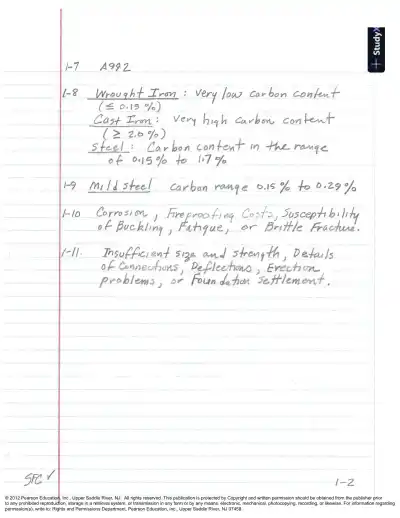 + StudyX
1-7 A992
1-8 Wrought Iron : Very low carbon content
(≤ 0.15 %)
Cast Iron : very high carbon content
(≥ 2.0 %)
Steel : Carbon content in the range
of 0.15% to 1.7%
1-9 Mild steel carbon range 0.15 % to 0.29 %
1-10 Corrosion, Fireproofing Costs, Susceptibility
of Buckling, Fatigue, or Brittle Fracture.
1-11. Insufficient size and strength, Details
of Connections, Deflections, Erection
problems, or Foundation Settlement.
SPC ✓
1-2
© 2012 Pearson Education, Inc., Upper Saddle River, NJ. All rights reserved. This publication is protected by Copyright and written permission should be obtained from the publisher prior
to any prohibited reproduction, storage in a retrieval system, or transmission in any form or by any means, electronic, mechanical, photocopying, recording, or likewise. For information regarding
permission(s), write to: Rights and Permissions Department, Pearson Education, Inc., Upper Saddle River, NJ 07458.